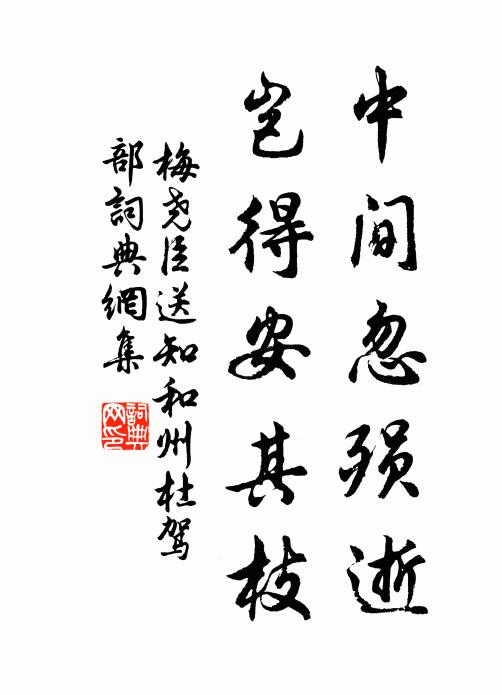 中间忽殒逝
岂得安其枝
梅尧臣送知和州杜驾
部詞典網集
詞典
网印